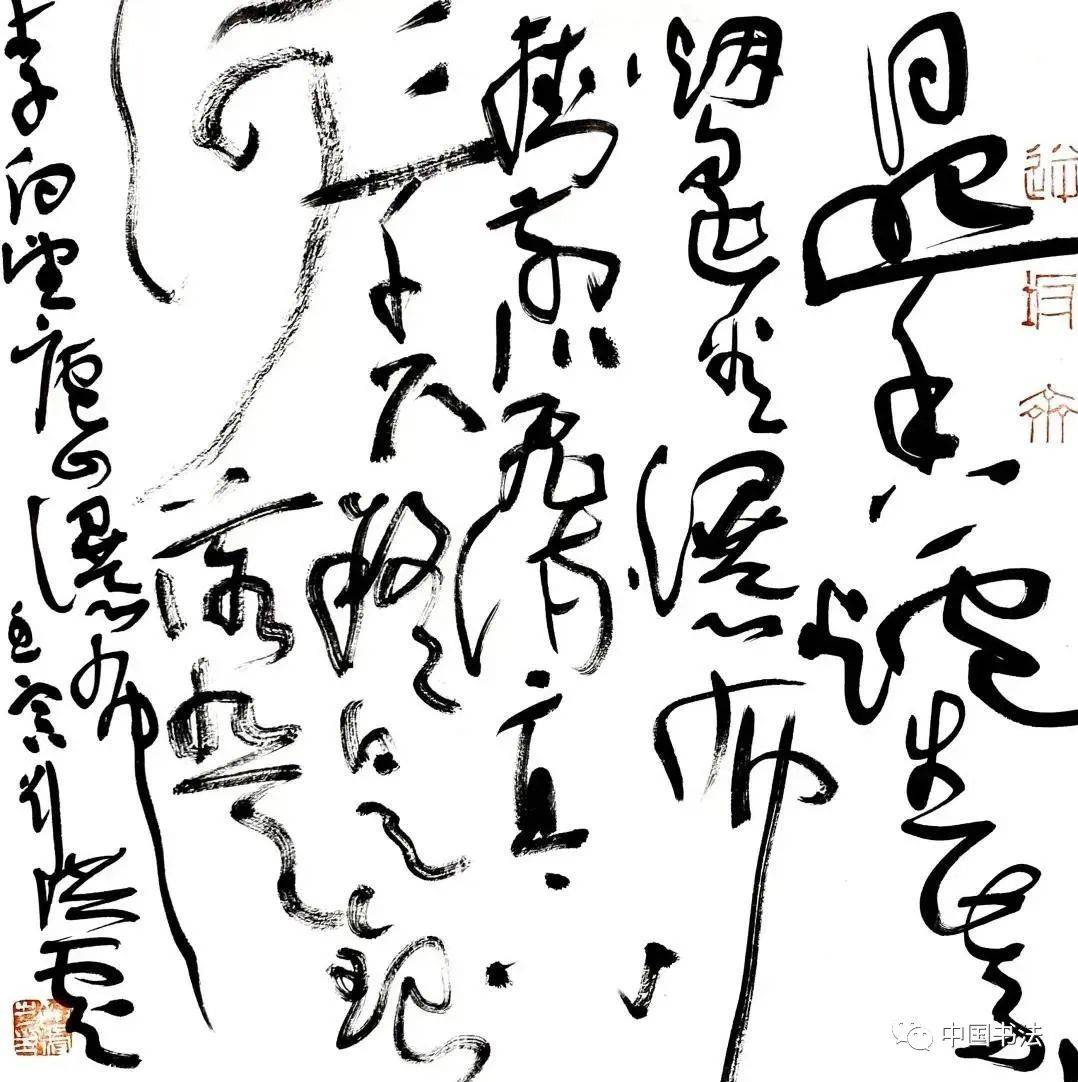 日照香爐生紫
烟遥看瀑布
挂前川飛流直下
三千尺疑是銀
河落九天
李白望廬山瀑布
壬寅
中国书法